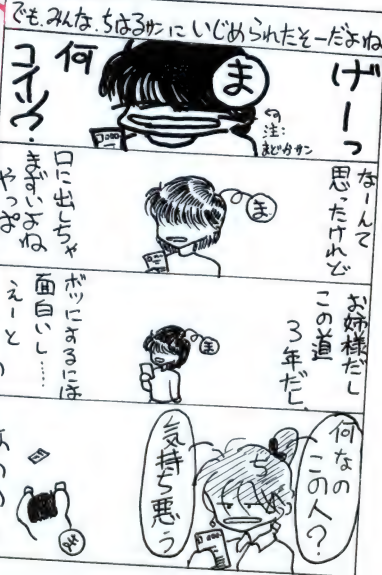 でも、みんな、ちはるサンにいじめられたそーだよね
げーっ
ま
注:
まどかサン
何
コイツ・
なーんて
思ったけれど
ま
口に出しちゃ
まずいよね
やっぱ
お姉様だし
この道
3年だし、
ま
ボツにするには
面白いし……
えーと
何なの
この人?
ち
気持ち悪う